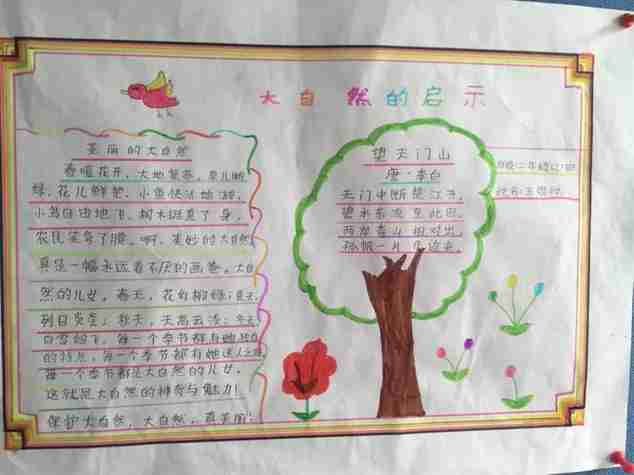 大自然的启示
美丽的大自然
春暖花开,大地复苏,草儿嫩
绿,花儿鲜艳,小鱼快活地游,
小鸟自由地飞,树木斑驳了身,
农民笑弯了腰。啊,美妙的大自然
真是一幅永远看不厌的画卷。大自
然的儿女。春天,花红柳绿;夏天,
烈日炎炎;秋天,天高云淡;冬天,
白雪如飞。每一个季节都有她独自
的特点,每一个季节都有她迷人之处
每一个季节都是大自然的儿女。
这就是大自然的神奇与魅力!
保护大自然,大自然,真美丽!
望天门山
唐·李白
天门中断楚江开,
碧水东流至此回。
两岸青山相对出,
孤帆一片日边来。
班级:二年级
姓名:王